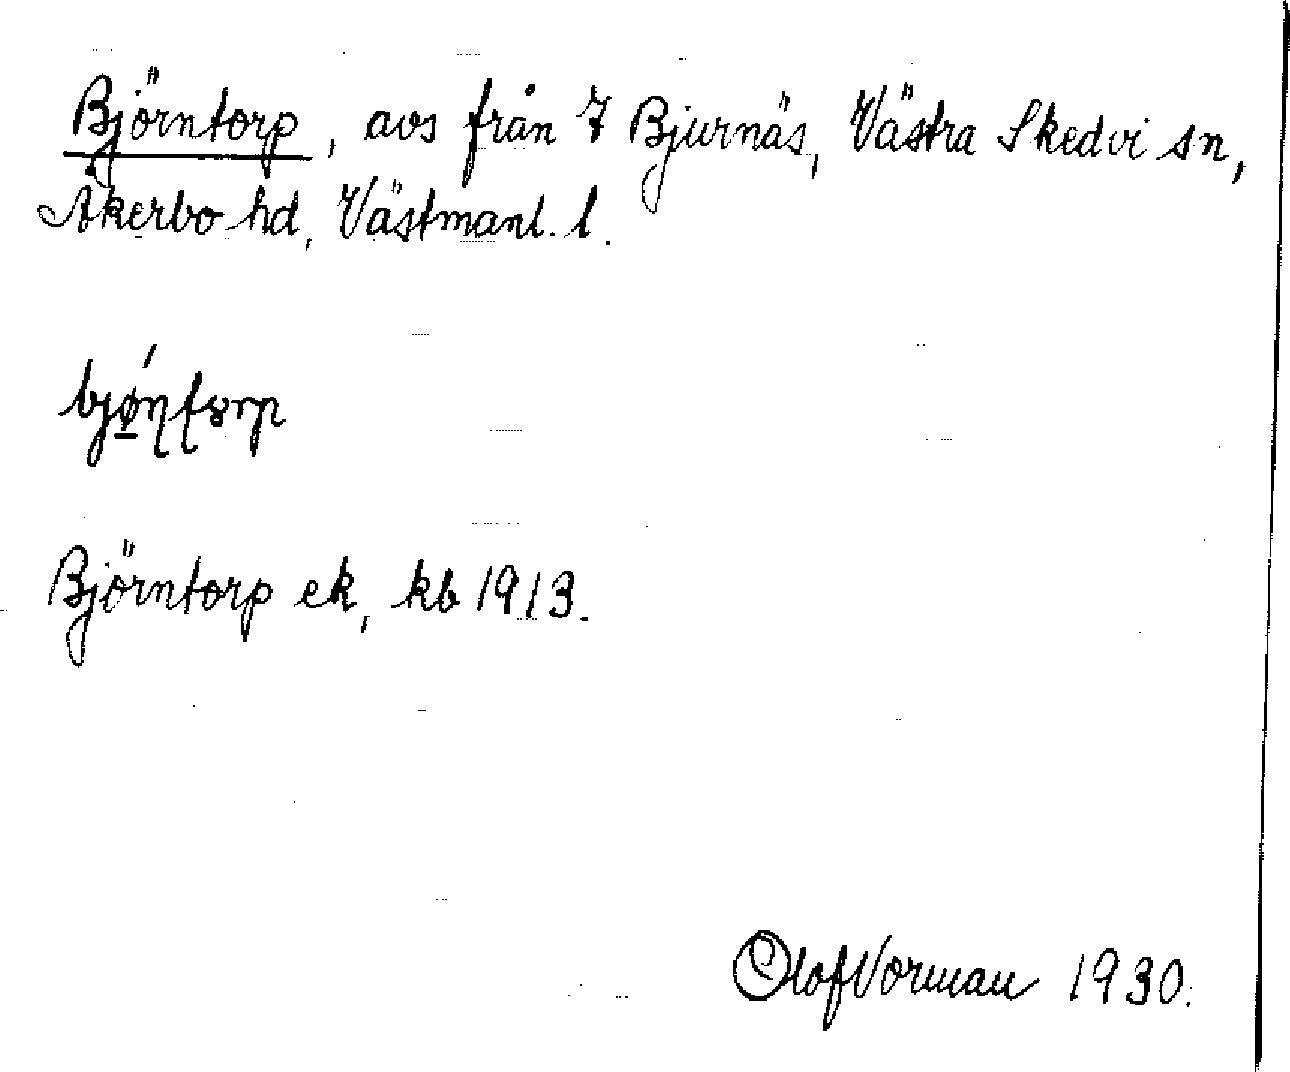 Björntorp, avs från 7 Bjurnäs, Västra Skedvi sn,
Åkerbo hd, Västmanl. l.
Björntorp ek, kb 1913.
Olof Vorman 1930.